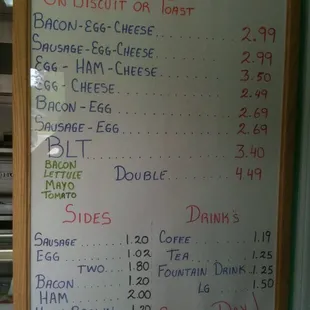 ON BISCUIT OR TOAST
BACON-EGG-CHEESE.......... 2.99
SAUSAGE-EGG-CHEESE........ 2.99
EGG - HAM - CHEESE........ 3.50
EGG - CHEESE.............. 2.49
BACON - EGG............... 2.69
SAUSAGE - EGG............. 2.69
BLT....................... 3.40
BACON
LETTULE
MAYO
TOMATO
DOUBLE....... 4.49
SIDES
SAUSAGE........ 1.20
EGG............ 1.02
TWO.... 1.80
BACON.......... 1.20
HAM............ 2.00
DRINKS
COFFE.......... 1.19
TEA............ 1.25
FOUNTAIN DRINK. 1.25
LG........ 1.50